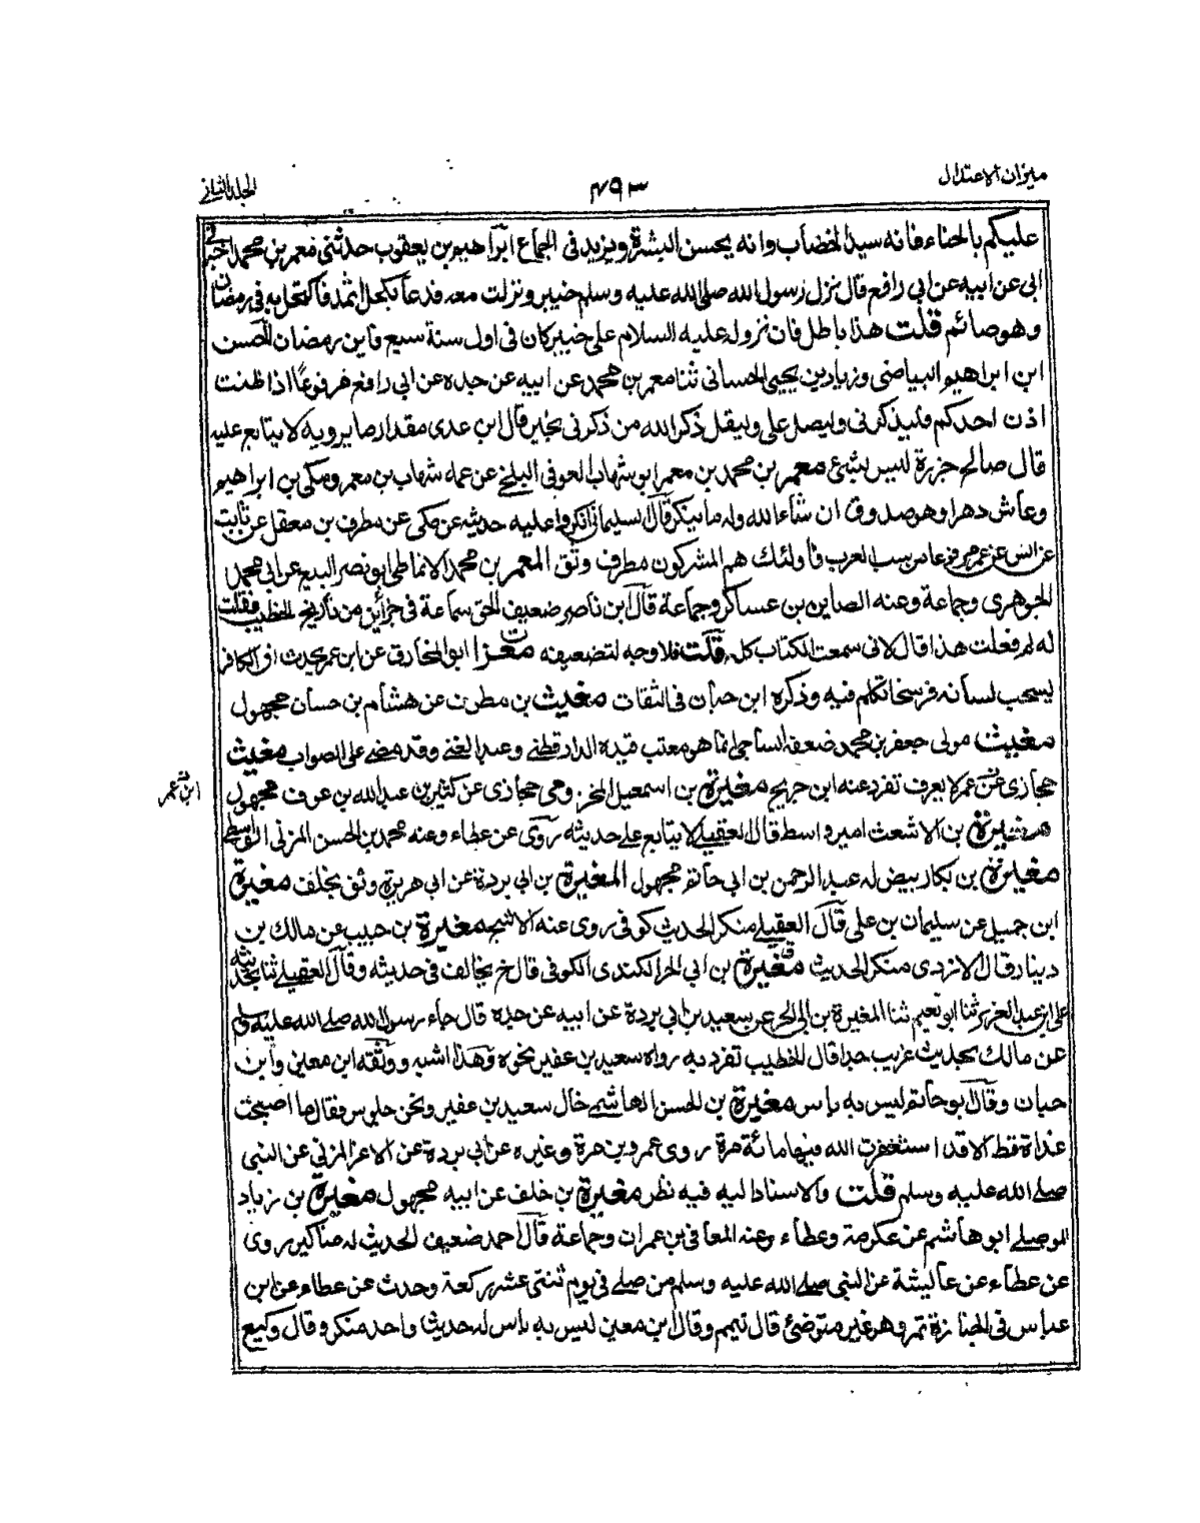 ميزان الاعتدال
٤٩٣
المجلد الثاني
عليكم بالحناء فانه سيد الخضاب وانه يحسن البشرة ويزيد في الجماع ابراهيم بن يعقوب حدثني معمر بن محمد اخبرني
ابي عن ابيه عن ابي رافع قال نزل رسول الله صلى الله عليه وسلم خيبر ونزلت معه فدعا بكحل اثمد فاكتحل به في رمضان
وهو صائم قلت هذا باطل فان نزوله عليه السلام على خيبر كان في اول سنة سبع فاين رمضان الحسن
ابن ابراهيم البياضي وزياد بن يحيى الحساني ثنا معمر بن محمد عن ابيه عن جده عن ابي رافع مرفوعا اذا طنت
اذن احدكم فليذكرني وليصل علي وليقل ذكر الله من ذكرني بخير قال ابن عدي مقدار ما يرويه لا يتابع عليه
قال صالح جزرة ليس بشئ معمر بن محمد بن معمر ابو شهاب العوفي البلخي عن عمه شهاب بن معمر ومكي بن ابراهيم
وعاش دهرا وهو صدوق ان شاء الله وله ما ينكر قال السليماني انكروا عليه حديثه عن مكي عن مطرف بن معقل عن ثابت
عن انس عن عمر مرفوعا من سب العرب فاولئك هم المشركون مطرف وثق المعمر بن محمد الانماطي ابو نصر البيع عن ابي محمد
الجوهري وجماعة وعنه الصاين بن عساكر وجماعة قال ابن ناصر ضعيف الحق سماعة في جزأين من تاريخ الخطيب فقلت
له لم فعلت هذا قال لاني سمعت الكتاب كله قلت فلا وجه لتضعيفه مغرا ابو المخارق عن ابن عمر يحدث ان الكافر
يسحب لسانه فرسخا تكلم فيه وذكره ابن حبان في الثقات مغيث بن مطرف عن هشام بن حسان مجهول
مغيث مولى جعفر بن محمد ضعفه الساجي انما هو معتب قيده الدارقطني وعبد الغني وقد مضى على الصواب مغيث
حجازي عن عمر لا يعرف تفرد عنه ابن جريج مغيرة بن اسمعيل المخزومي حجازي عن كثير بن عبد الله بن عوف مجهول
ابن عمر
مغيرة بن الاشعث امير واسط قال العقيلي لا يتابع على حديثه روى عن عطاء وعنه محمد بن الحسن المزني الواسطي
مغيرة بن بكار بيض له عبد الرحمن بن ابي حاتم مجهول المغيرة بن ابي بردة عن ابي هريرة وثق بخلف مغيرة
ابن جميل عن سليمان بن علي قال العقيلي منكر الحديث كوفي روى عنه الاشج مغيرة بن حبيب عن مالك بن
دينار قال الازدي منكر الحديث مغيرة بن ابي الحر الكندي الكوفي قال خ يخالف في حديثه وقال العقيلي ثنا بحديثه
علي بن عبد العزيز ثنا ابو نعيم ثنا المغيرة بن ابي الحر عن سعيد بن ابي بردة عن ابيه عن جده قال جاء رسول الله صلى الله عليه وسلم
عن مالك بحديث غريب جدا قال الخطيب تفرد به رواه سعيد بن عفير نحوه وهذا اشبه ووثقه ابن معين وابن
حبان وقال ابو حاتم ليس به باس مغيرة بن الحسن الهاشمي خال سعيد بن عفير ونحن جلوس فقال ما اصبحت
غداة قط الا قد استغفرت الله فيها مائة مرة روى عمرو بن مرة وغيره عن ابي بردة عن الاغر المزني عن النبي
صلى الله عليه وسلم قلت والاسناد اليه فيه نظر مغيرة بن خلف عن ابيه مجهول مغيرة بن زياد
الموصلي ابو هاشم عن عكرمة وعطاء وعنه المعافى بن عمران وجماعة قال احمد ضعيف الحديث له مناكير روى
عن عطاء عن عائشة عن النبي صلى الله عليه وسلم من صلى في يوم ثنتي عشر ركعة وحدث عن عطاء عن ابن
عباس في الجنازة تمر وهو غير متوضئ قال تيمم وقال ابن معين ليس به باس له حديث واحد منكر وقال وكيع